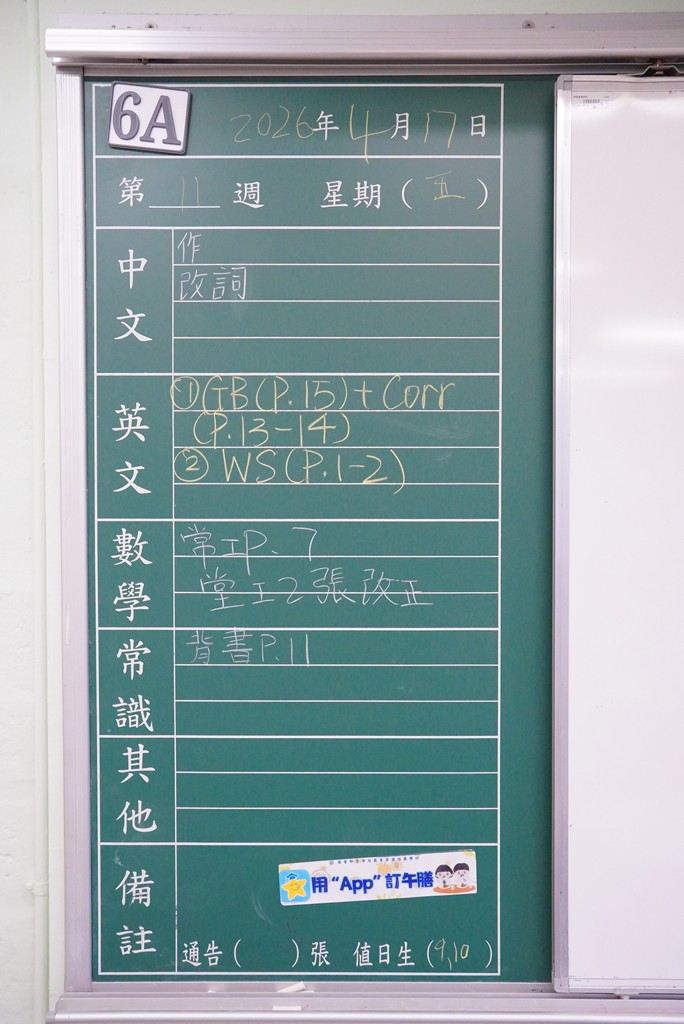 6A
2026年4月17日
第 11 週 星期(五)
中文
作
改詞
英文
①GB(P.15)+Corr
(P.13-14)
②WS(P.1-2)
數學
常工P.7
堂工2張改正
常識
背書P.11
其他
備註
用“App”訂午膳
通告( )張 值日生(9,10)